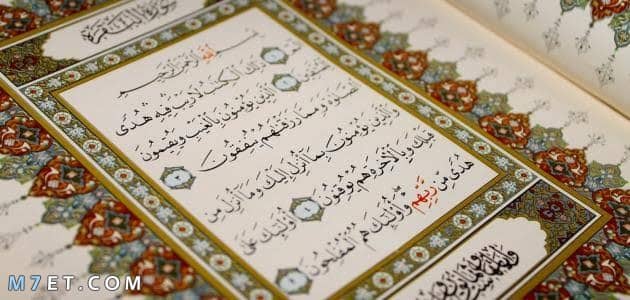 سُورَةُ الْبَقَرَةِ
بِسْمِ اللَّهِ الرَّحْمَٰنِ الرَّحِيمِ
الٓمٓ ١ ذَٰلِكَ الْكِتَٰبُ لَا رَيْبَ فِيهِ هُدًى
لِلْمُتَّقِينَ ٢ الَّذِينَ يُؤْمِنُونَ بِالْغَيْبِ وَيُقِيمُونَ
الصَّلَاةَ وَمِمَّا رَزَقْنَٰهُمْ يُنْفِقُونَ ٣
وَالَّذِينَ يُؤْمِنُونَ بِمَا أُنْزِلَ إِلَيْكَ وَمَا أُنْزِلَ مِنْ
قَبْلِكَ وَبِالْآخِرَةِ هُمْ يُوقِنُونَ ٤ أُولَٰئِكَ عَلَىٰ
هُدًى مِنْ رَبِّهِمْ وَأُولَٰئِكَ هُمُ الْمُفْلِحُونَ ٥
M7ET.COM